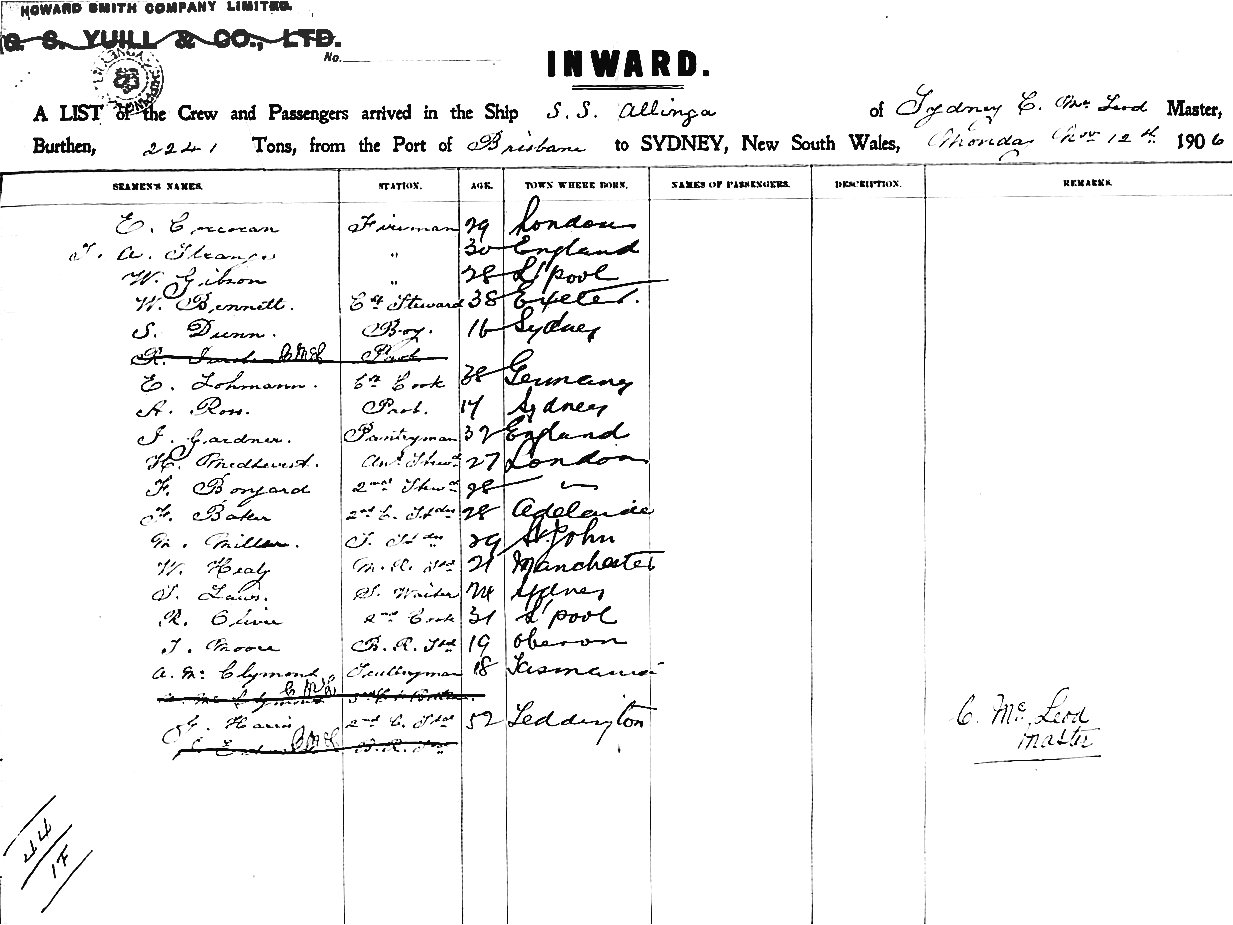 HOWARD SMITH COMPANY LIMITED.
G. S. YUILL & CO., LTD.
No.
INWARD.
A LIST of the Crew and Passengers arrived in the Ship S. S. Allinga of Sydney C. Mc Leod Master,
Burthen, 2241 Tons, from the Port of Brisbane to SYDNEY, New South Wales, Monday Nov 12th 1906
SEAMEN'S NAMES. STATION. AGE. TOWN WHERE BORN. NAMES OF PASSENGERS. DESCRIPTION. REMARKS.
E. Corcoran Fireman 29 London
T. A. Strange " 30 England
W. Gibson " 28 L'pool
W. Bennett. Ct Steward 38 Exeter.
S. Dunn. Boy. 16 Sydney
R. CMcL
E. Lohmann. Cook 38 Germany
A. Ross. 17 Sydney
J. Gardner. Pantryman 32 England
H. Medhurst. 27 London
F. Bonjard 2nd Stewd 28 "
F. Baker 2nd C. 28 Adelaide
M. Miller. 29 St. John
W. Healy M. R. Std 21 Manchester
T. Laws. S. Waiter 24 Sydney
R. Olivier 2nd Cook 31 L'pool
T. Moore B. R. Std 19 Oberon
A. Mc Clymont Sculleryman 18 Tasmania
CMcL
Harris 2nd C. 52 Teddington
C. Mc Leod
Master
CMcL
44
1F